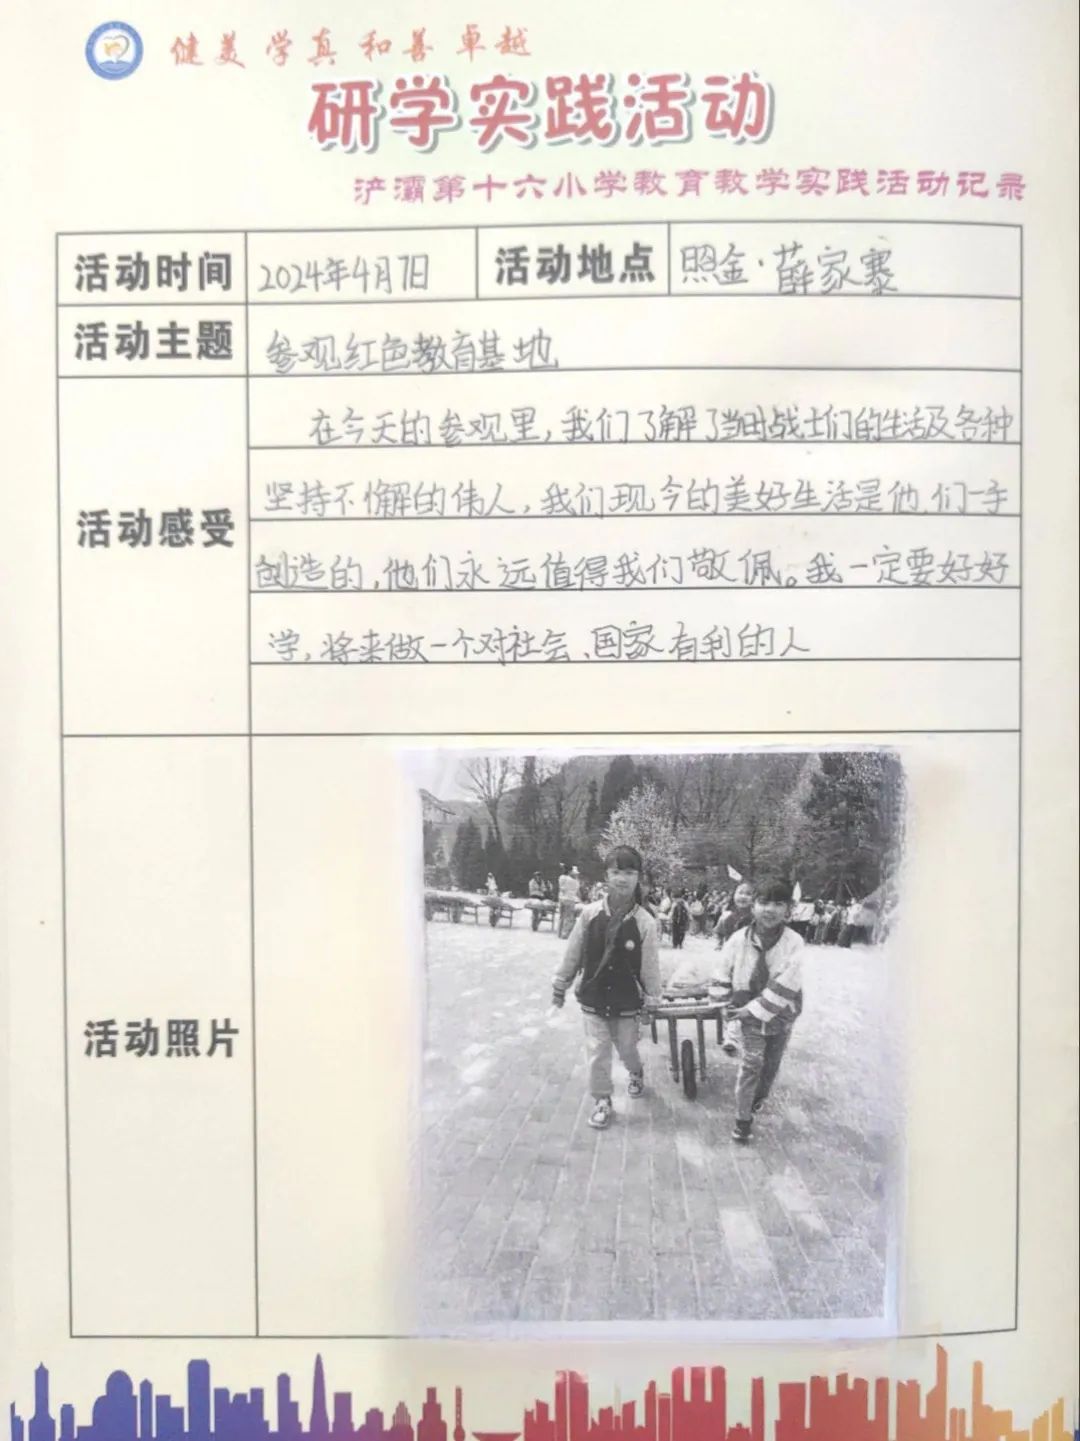 健美 学真 和善 卓越
研学实践活动
浐灞第十六小学教育教学实践活动记录
活动时间 2024年4月7日 活动地点 照金·薛家寨
活动主题 参观红色教育基地
在今天的参观里,我们了解了当时战士们的生活及各种
坚持不懈的伟人,我们现今的美好生活是他们一手
活动感受
创造的,他们永远值得我们敬佩。我一定要好好
学,将来做一个对社会、国家有利的人
活动照片